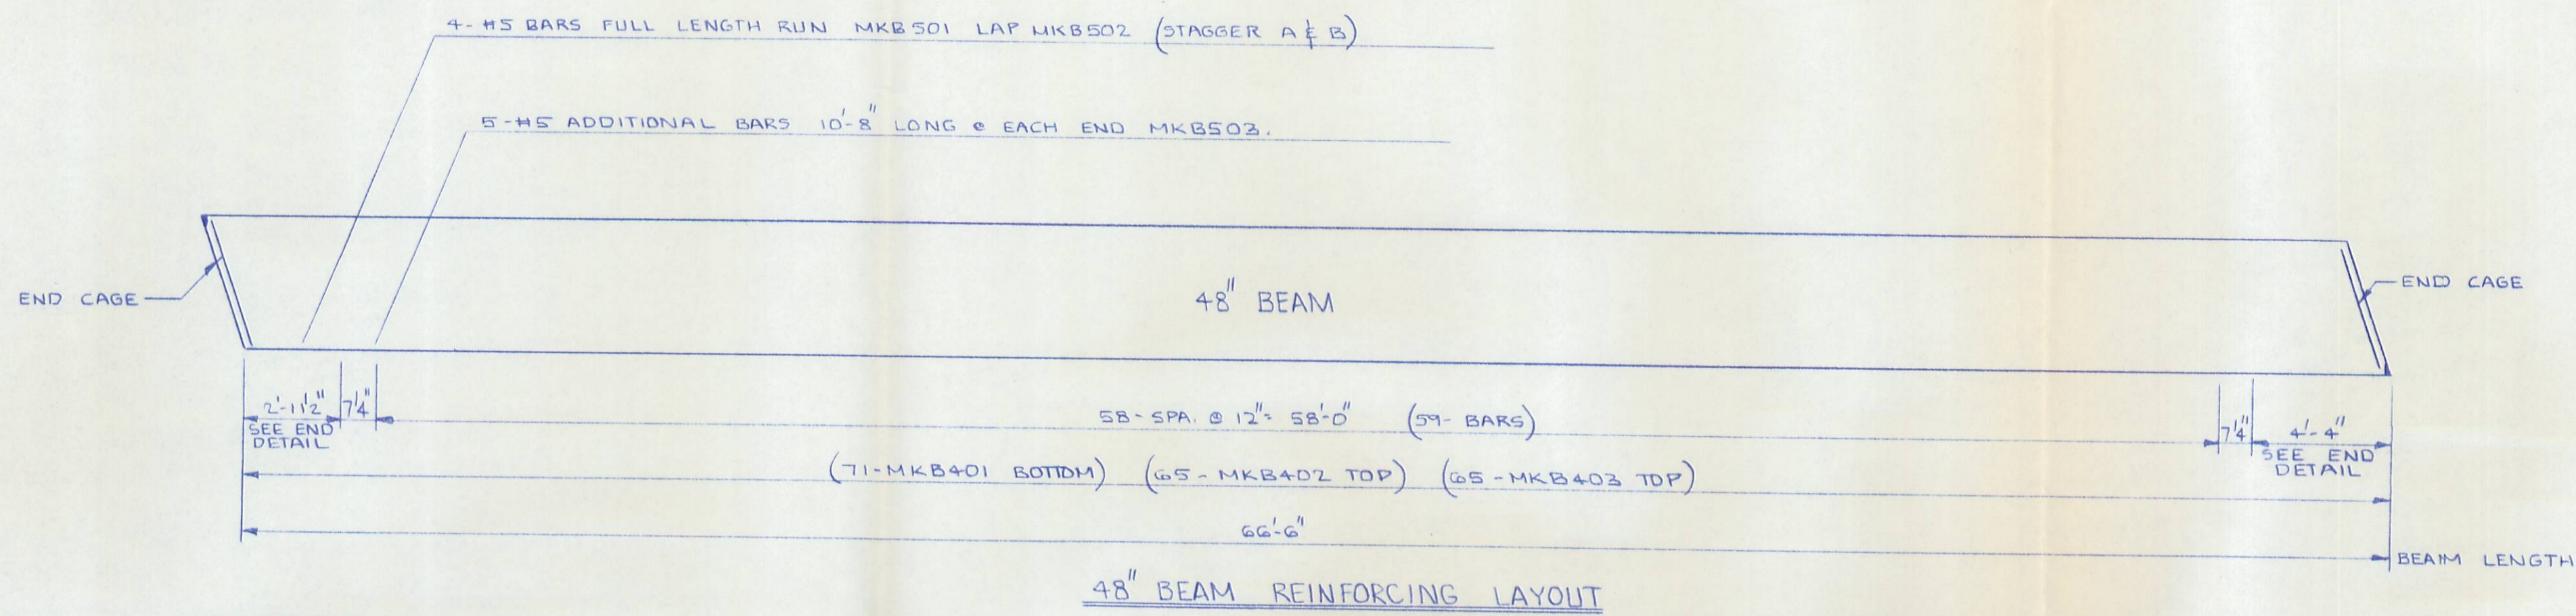 4-#5 BARS FULL LENGTH RUN MKB501 LAP MKB502 (STAGGER A & B)
5-#5 ADDITIONAL BARS 10'-8" LONG @ EACH END MKB503.
END CAGE
48" BEAM
END CAGE
2'-11 1/2"
SEE END
DETAIL
7 1/4"
58-SPA. @ 12"= 58'-0" (59-BARS)
7 1/4"
4'-4"
SEE END
DETAIL
(71-MKB401 BOTTOM) (65-MKB402 TOP) (65-MKB403 TOP)
66'-6"
BEAM LENGTH
48" BEAM REINFORCING LAYOUT